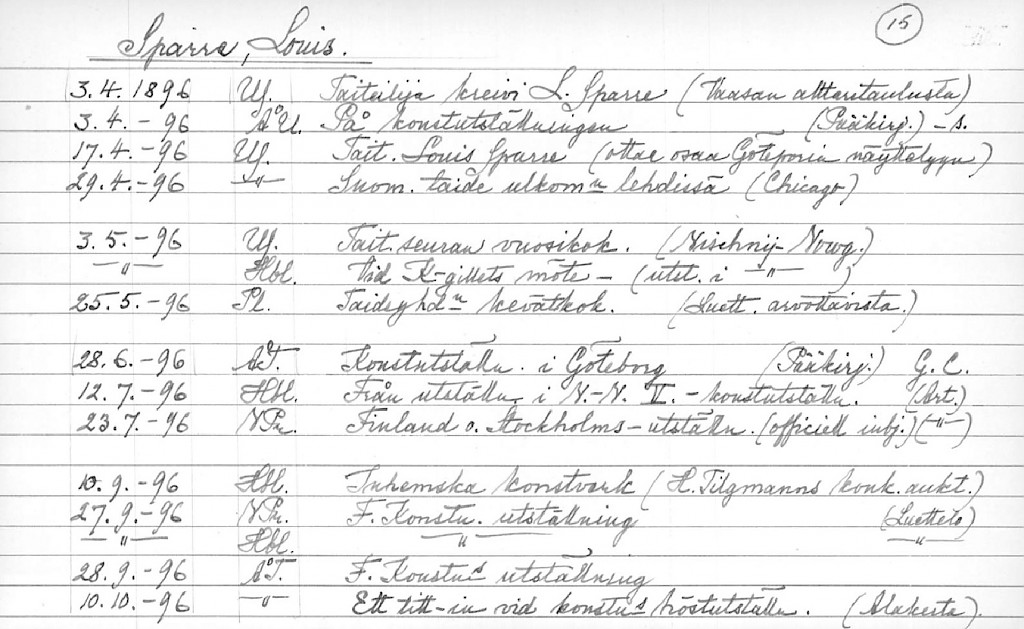 15
Sparre, Louis.
3.4.1896 Uf. Taiteilija kreivi L. Sparre (Vaasan alttaritaulusta)
3.4.-96 ÅU. På konstutställningen (Pääkirj.) -s.
17.4.-96 Uf. Tait. Louis Sparre (ottae osaa Göteporin näyttelyyn)
29.4.-96 -"- Suom. taide ulkom:n lehdissä (Chicago)
3.5.-96 Uf. Tait.seuran vuosikok. (Nischnij-Nowg.)
-"- Hbl. Vid K-gillets möte - (utst. i -"-)
25.5.-96 Pl. Taideyhd-n kevätkok. (Luett. arvottavista.)
28.6.-96 ÅT. Konstutställn. i Göteborg (Pääkirj.) G. C.
12.7.-96 Hbl. Från utställn. i N.-N. V. - konstutställn. (Art.)
23.7.-96 NPr. Finland o. Stockholms-utställn. (officiell inbj.) (-"-)
10.9.-96 Hbl. Inhemska konstverk (H. Tilgmanns konk. aukt.)
27.9.-96 NPr. F. Konstn. utställning (Luettelo)
-"- Hbl. -"- -"-
28.9.-96 ÅT. F. Konstn:s utställning
10.10.-96 -"- Ett titt-in vid konstn:s höstutställn. (Alakerta).